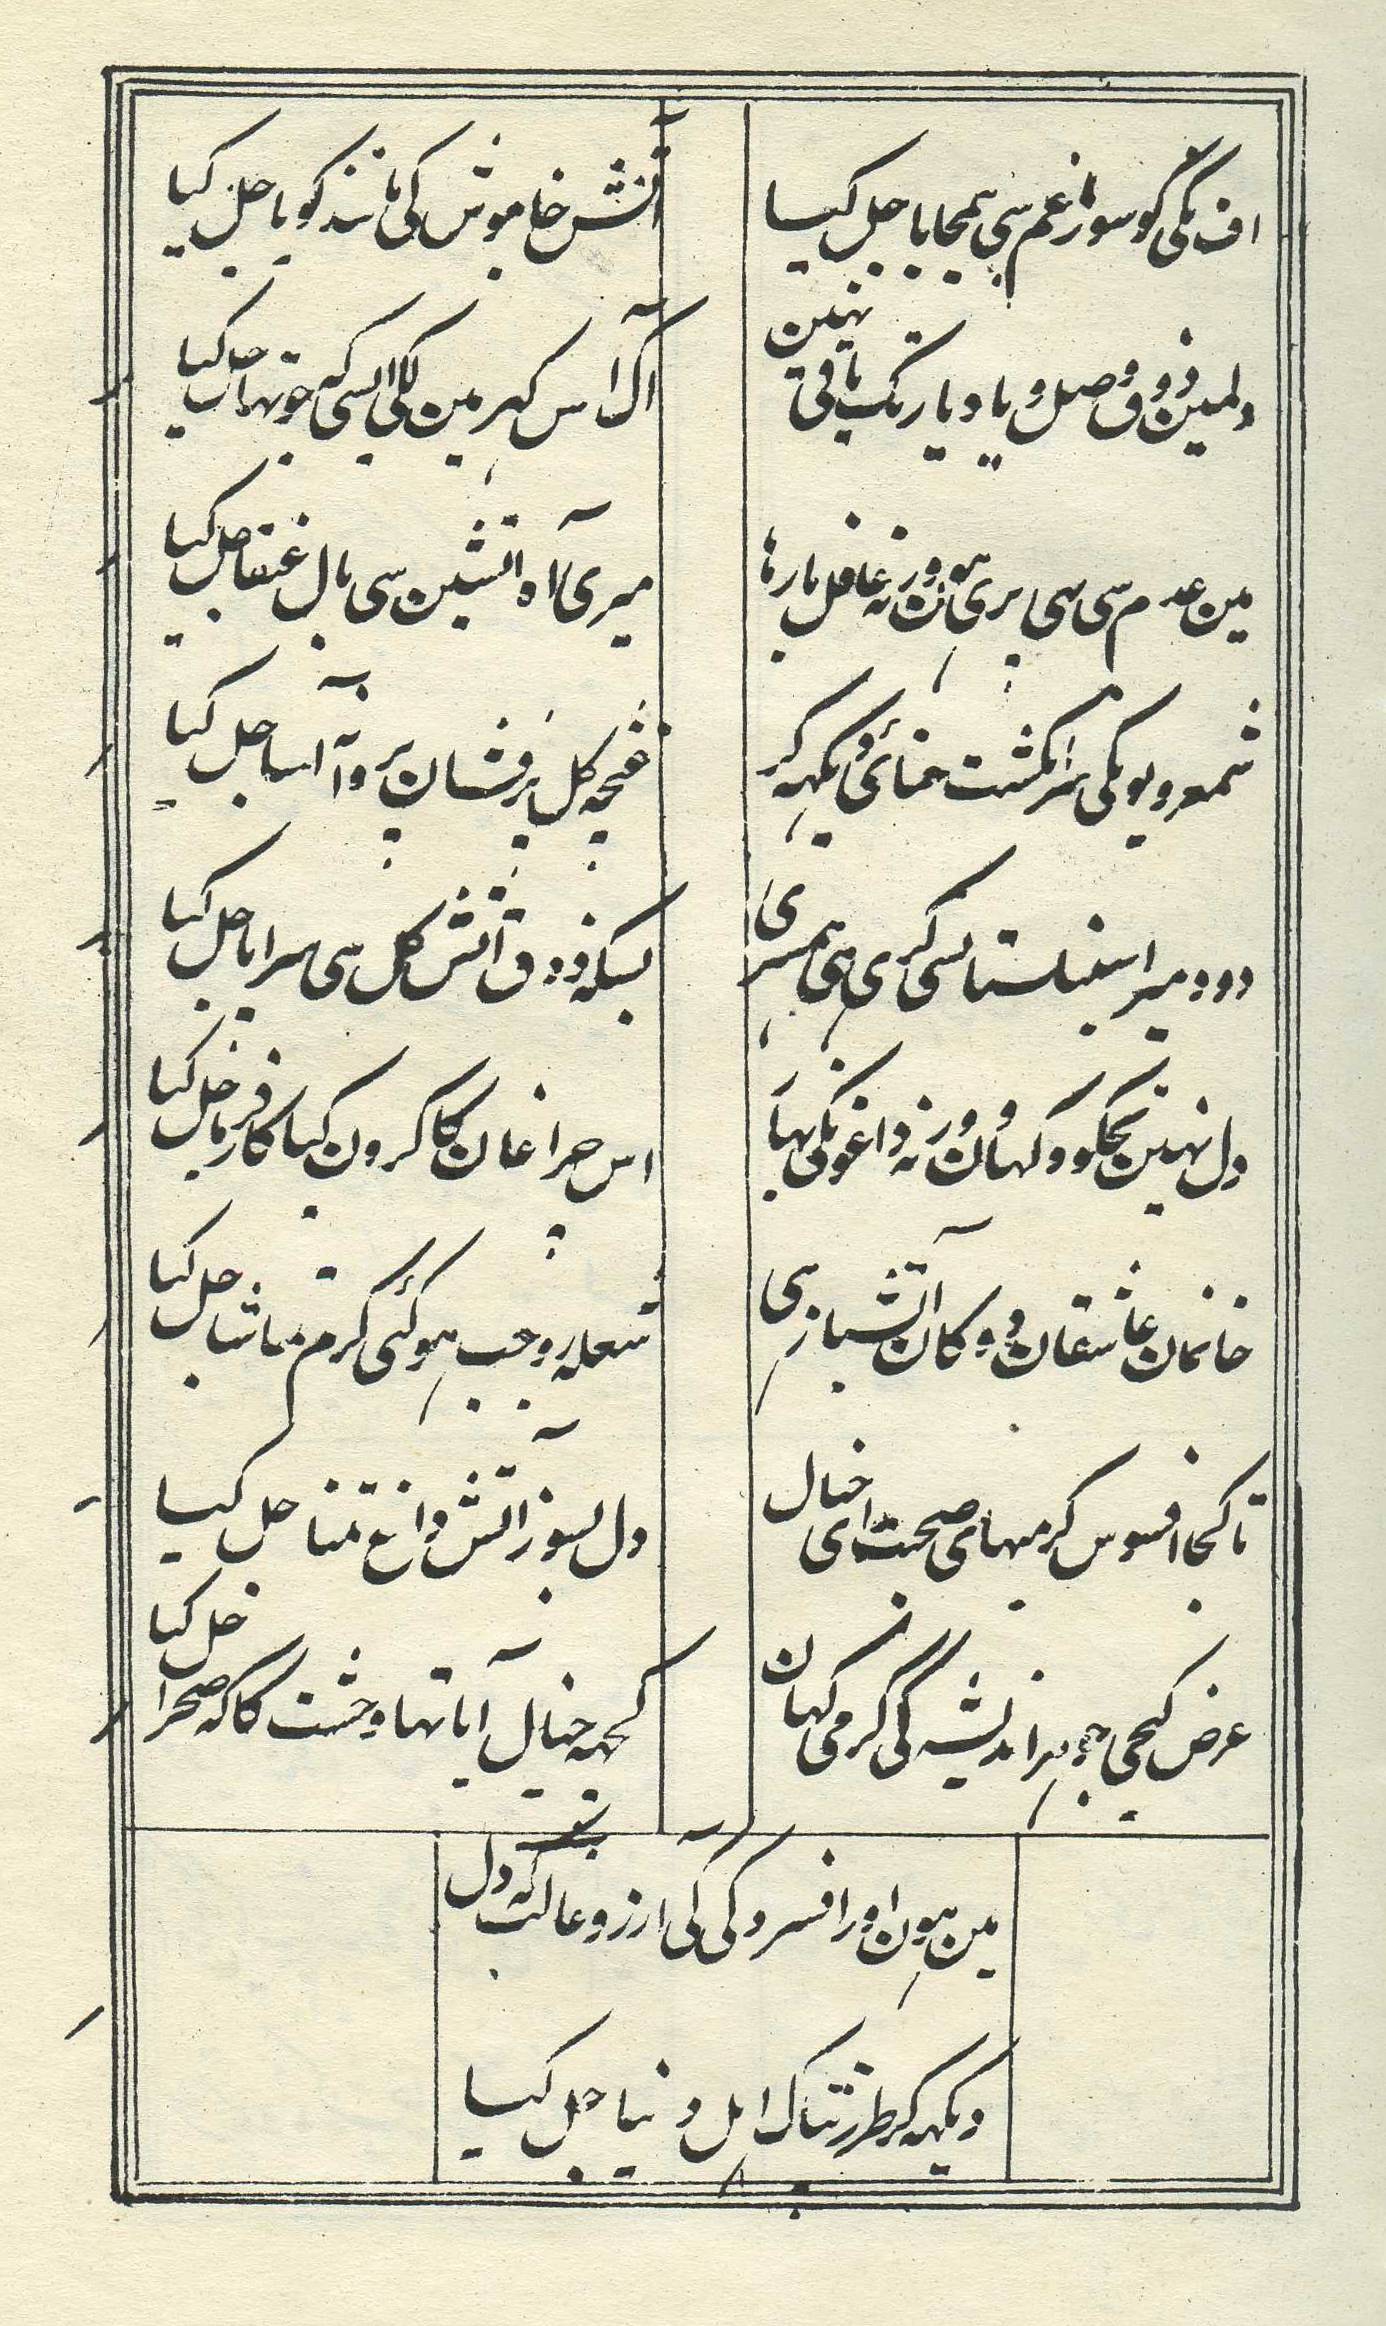 اف نکی کو سوز غم سی بیمحابا جل کیا
آتش خاموش کی مانند کویا جل کیا
دلمین ذوق وصل و یاد یار تک باقی نہین
آک اس کہر مین لکی ایسی کہ جو تہا جل کیا
مین عدم سی بہی پری ہون ورنہ غافل بارہا
میری آہ آتشین سی بال عنقا جل کیا
شمعرویونکی سر انکشت حنائی دیکہہ کر
غنچہ کل پرفشان پروانہ آسا جل کیا
دود میرا سنبلستانسی کری ہی ہمسری
بسکہ ذوق آتش کل سی سراپا جل کیا
دل نہین تجکو دکہاون ورنہ داغونکی بہار
اس چراغان کا کرون کیا کارفرما جل کیا
خانمان عاشقان دوکان آتشباز ہی
شعلہ رو جب ہوکئی کرم تماشا جل کیا
تا کجا افسوس کرمیہای صحبت ای خیال
دل بسوز آتش داغ تمنا جل کیا
عرض کیجی جوہر اندیشہ کی کرمی کہان
کچہہ خیال آیا تہا وحشت کا کہ صحرا جل کیا
مین ہون اور افسردکی کی آرزو غالب کہ دل
دیکہہ کر طرز تپاک اہل دنیا جل کیا